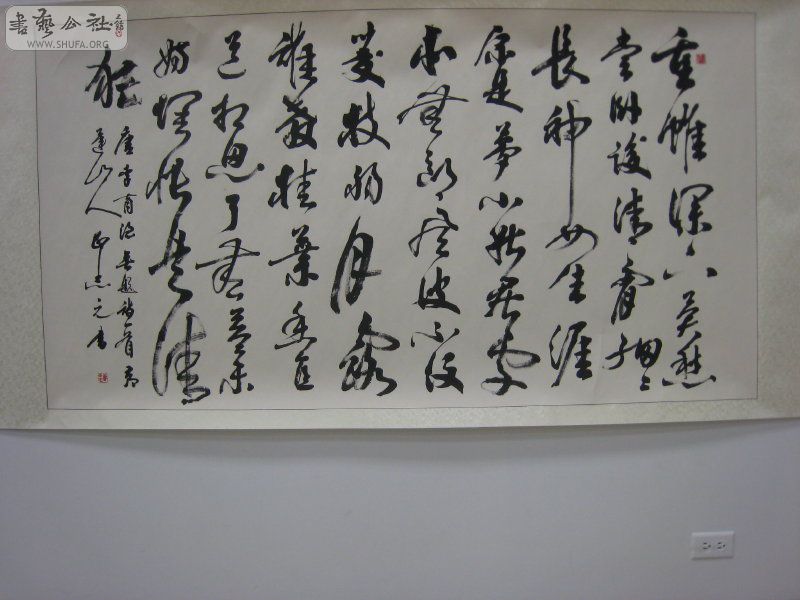 書藝公社
WWW.SHUFA.ORG
重帷深下莫愁
堂卧後清宵細々
長神女生涯
原是夢小姑居處
本無郎風波不没
菱枝弱月露
誰教桂葉香直
道相思了無益未
妨惆悵是清
狂
唐李商隱無題詩一首
山人 志元書